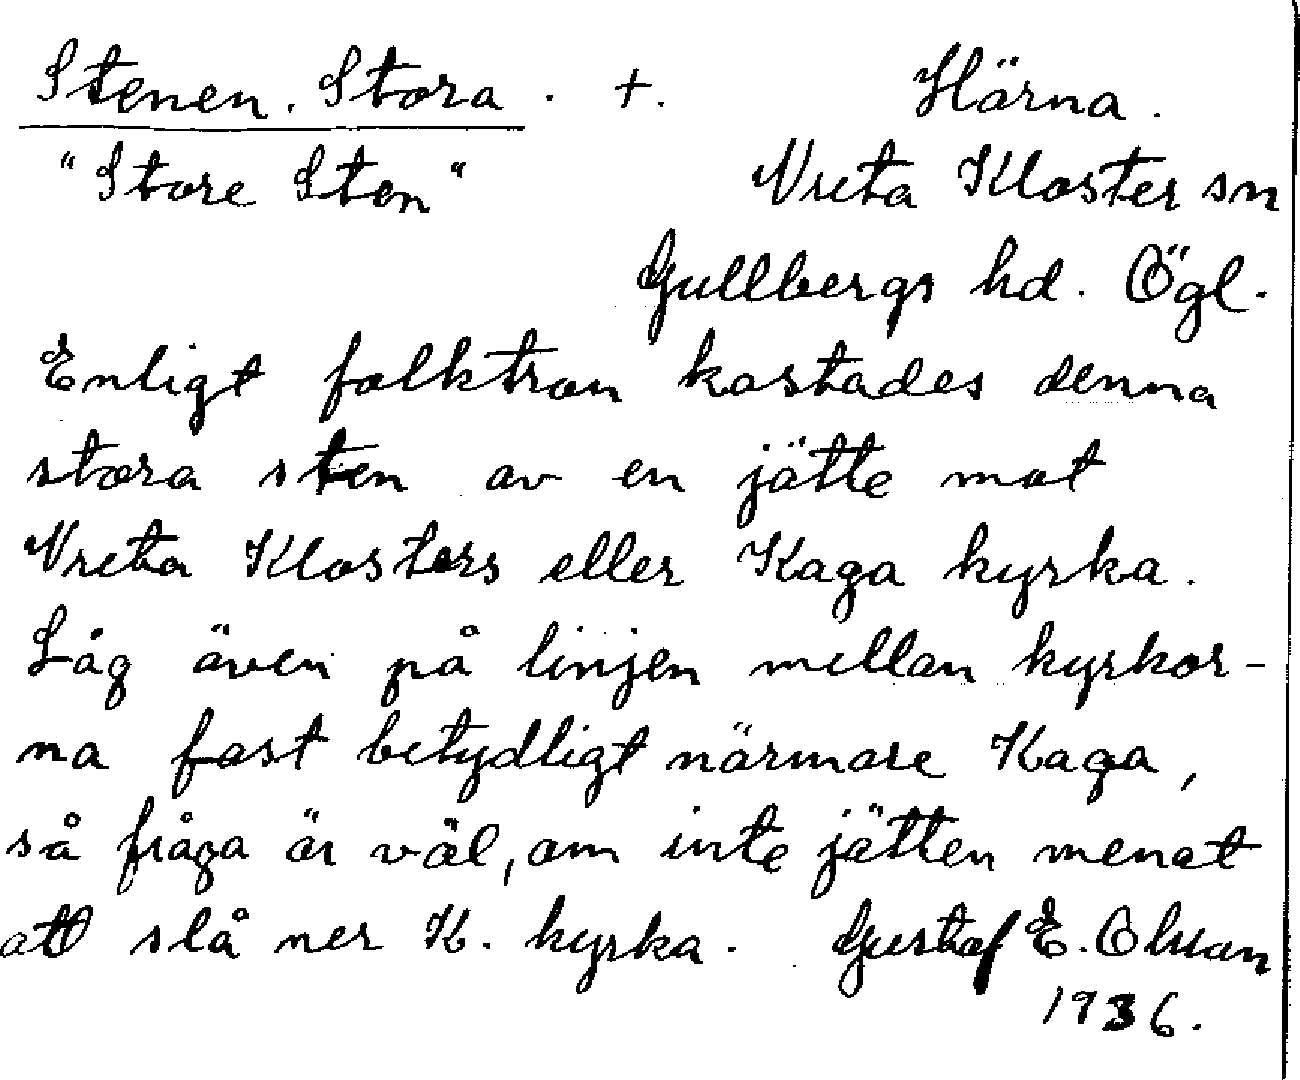 Stenen. Stora. +. Härna.
"Store Sten" Vreta Kloster sn
Gullbergs hd. Ögl.
Enligt folktron kastades denna
stora sten av en jätte mot
Vreta Klosters eller Kaga kyrka.
Låg även på linjen mellan kyrkor-
na fast betydligt närmare Kaga,
så fråga är väl, om inte jätten menat
att slå ner K. kyrka. Gustaf E. Olsson
1936.